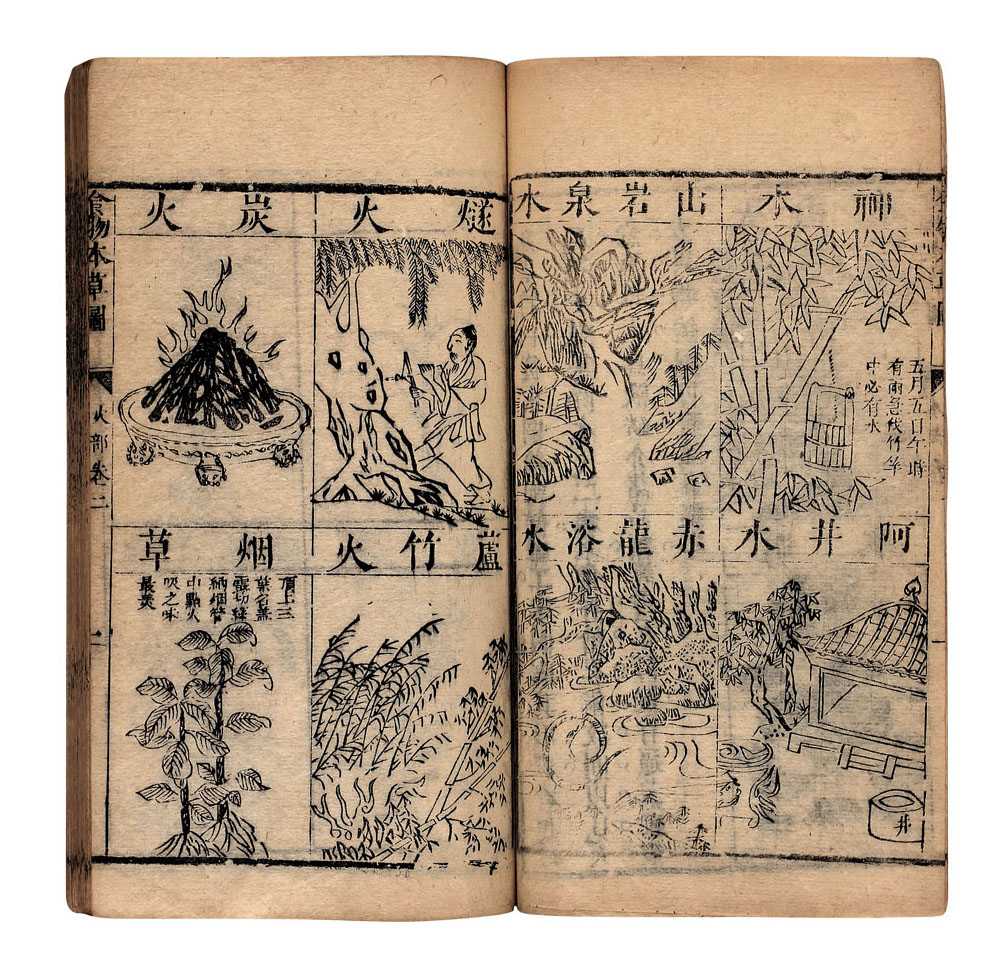 神水
五月五日午時
有雨急伐竹竿
中必有水
山岩泉水
阿井水
井
赤龍浴水
燧火
炭火
蘆竹火
烟草
頂上三
葉名蓋
露切絲
納烟管
中點火
吸之味
最美
食物本草圖
火部卷二